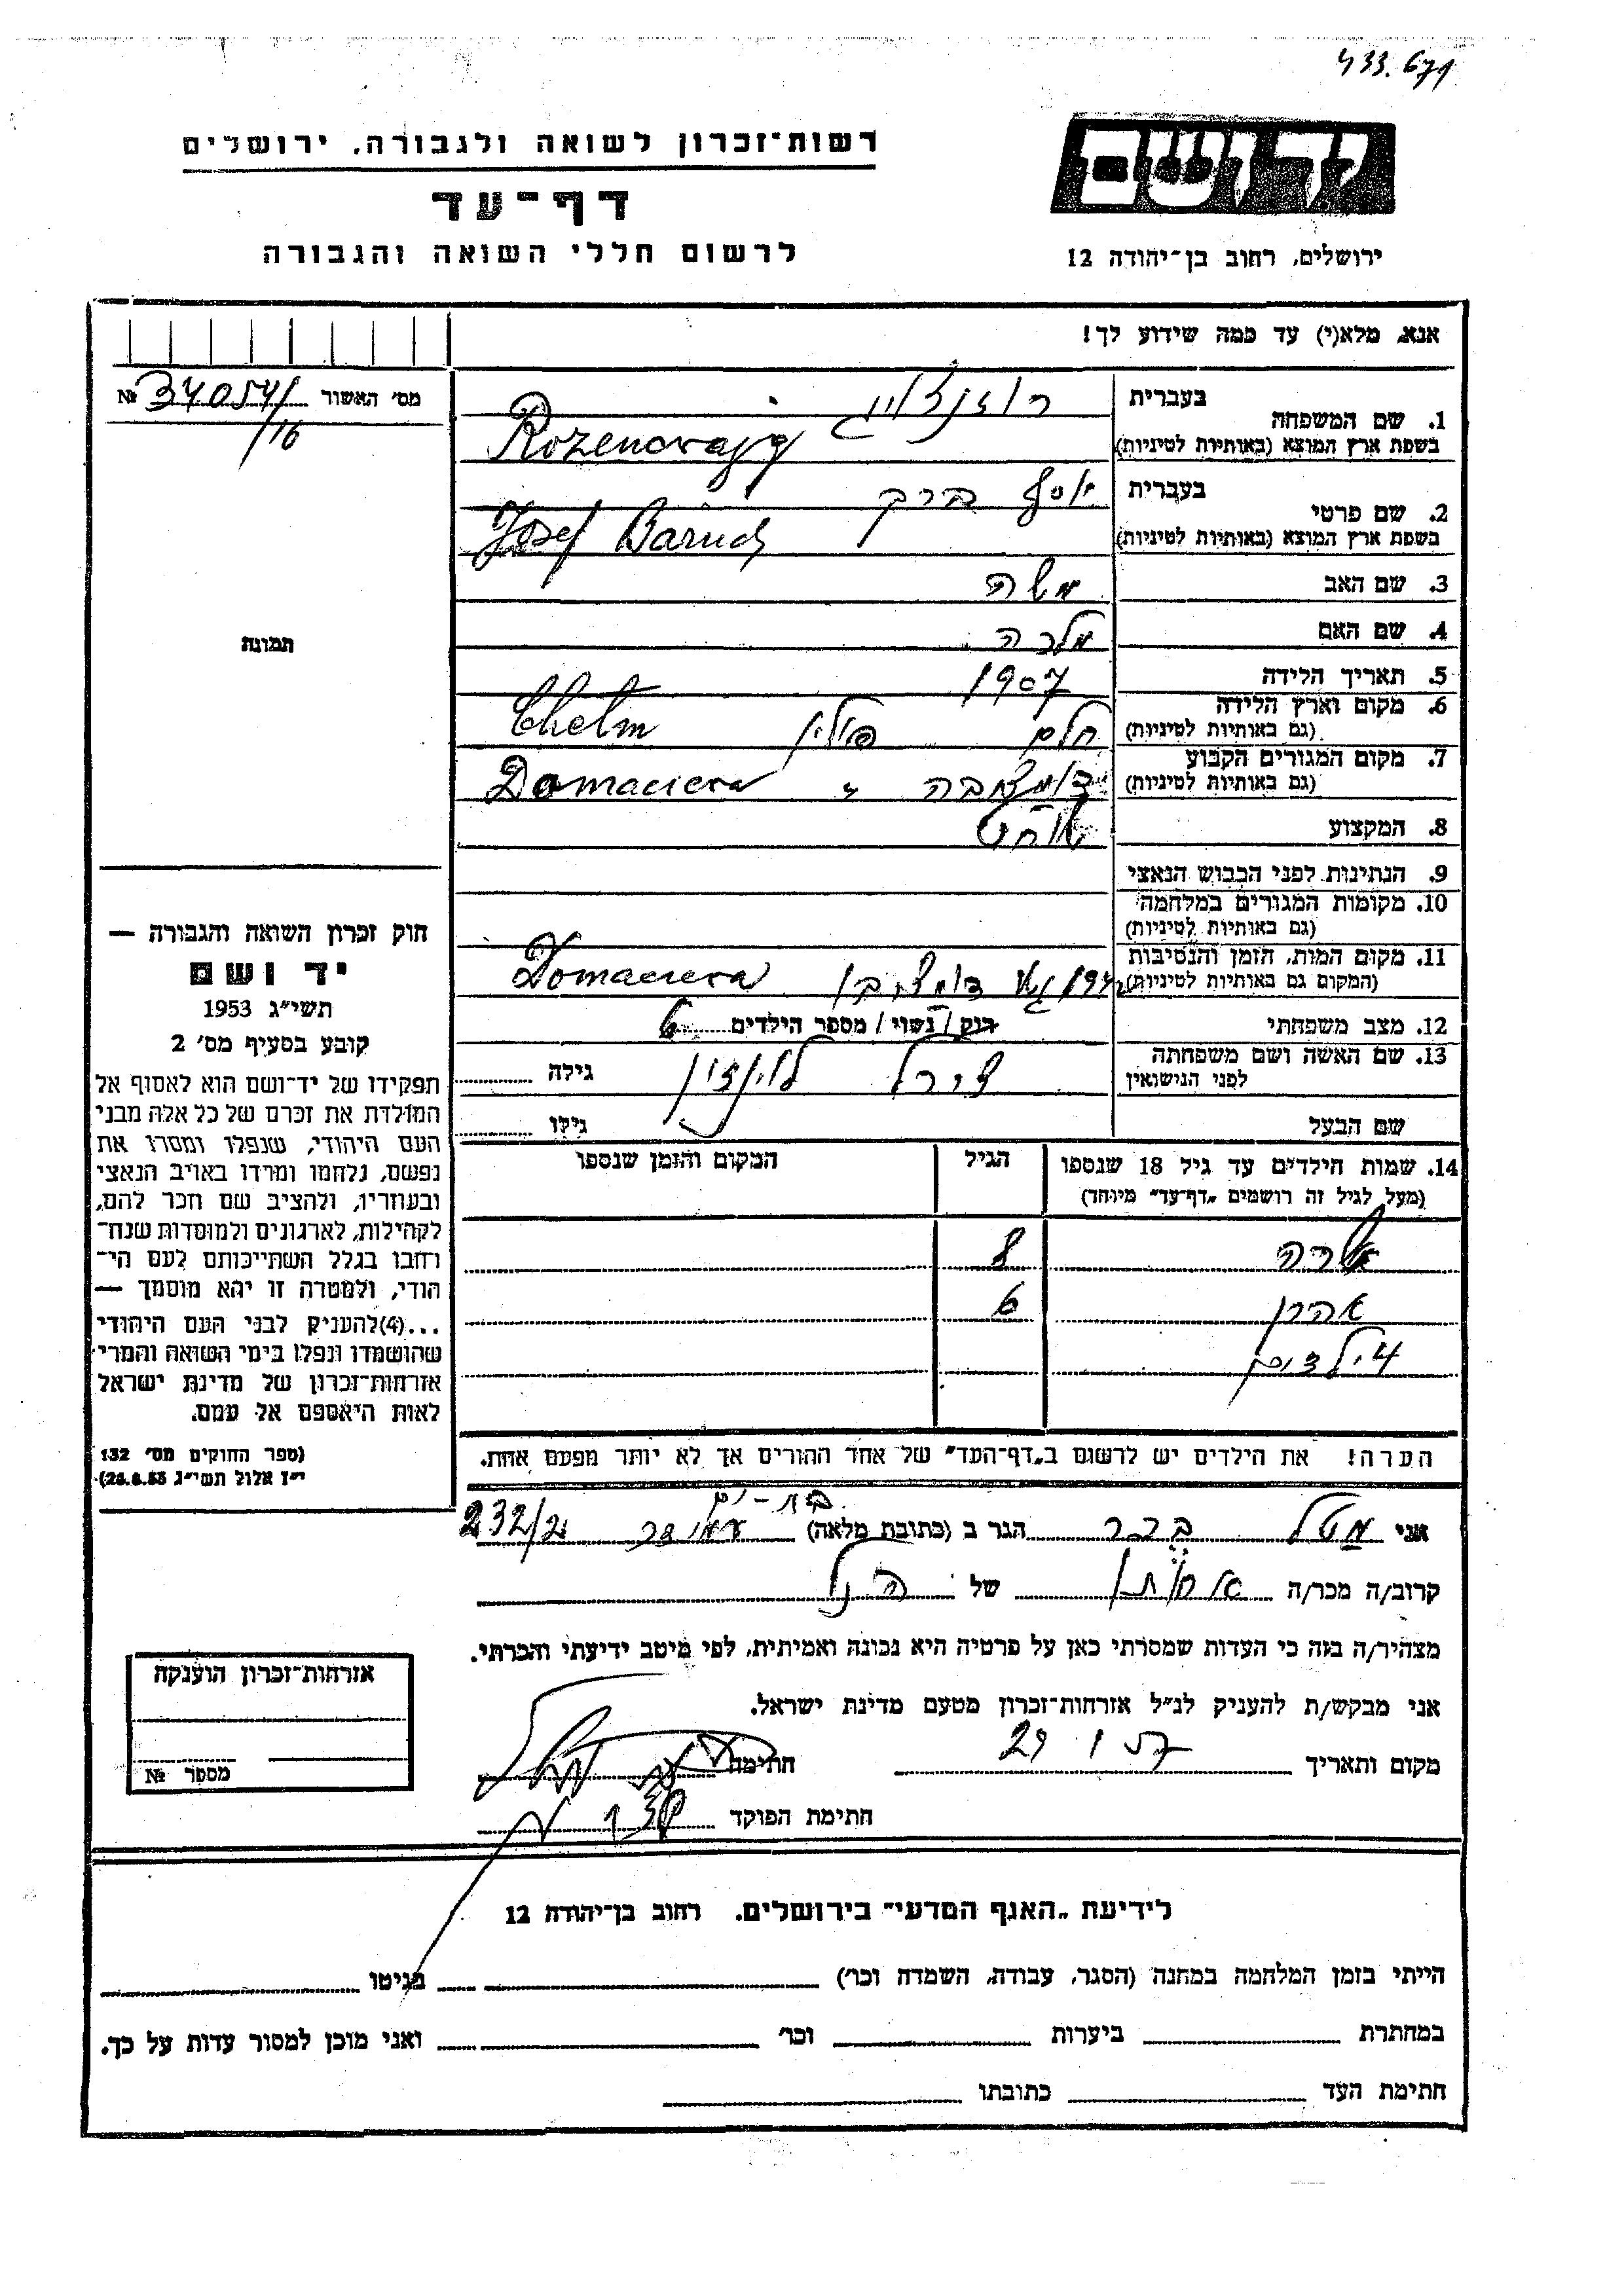 433.671
רשות-זכרון לשואה ולגבורה, ירושלים
יד ושם
דף-עד
לרשום חללי השואה והגבורה
ירושלים, רחוב בן-יהודה 12
אנא, מלא(י) עד כמה שידוע לך!
מס' האשור № 34054/
/16
בעברית
1. שם המשפחה
בשפת ארץ המוצא (באותיות לטיניות)
בעברית יוסף ברוך
2. שם פרטי
בשפת ארץ המוצא (באותיות לטיניות) Josef Baruch
3. שם האב משה
4. שם האם מלכה
5. תאריך הלידה 1907
6. מקום וארץ הלידה
(גם באותיות לטיניות) חלם פולין Chelm
7. מקום המגורים הקבוע
(גם באותיות לטיניות) Domaciewa
8. המקצוע שוחט
9. הנתינות לפני הכבוש הנאצי
10. מקומות המגורים במלחמה
(גם באותיות לטיניות)
11. מקום המות, הזמן והנסיבות
(המקום גם באותיות לטיניות) Domaciewa
12. מצב משפחתי רוק / נשוי / מספר הילדים 6
13. שם האשה ושם משפחתה
לפני הנישואין לוינזון גילה
שם הבעל גילו
14. שמות הילדים עד גיל 18 שנספו
(מעל לגיל זה רושמים "דף-עד" מיוחד)
הגיל
המקום והזמן שנספו
שרה 8
אהרן 6
4 ילדים
הערה! את הילדים יש לרשום ב"דף-העד" של אחד ההורים אך לא יותר מפעם אחת.
תמונה
חוק זכרון השואה והגבורה —
יד ושם
תשי"ג 1953
קובע בסעיף מס' 2
תפקידו של יד-ושם הוא לאסוף אל
המולדת את זכרם של כל אלה מבני
העם היהודי, שנפלו ומסרו את
נפשם, נלחמו ומרדו באויב הנאצי
ובעוזריו, ולהציב שם וזכר להם,
לקהילות, לארגונים ולמוסדות שנח-
רבו בגלל השתייכותם לעם הי-
הודי, ולמטרה זו יהא מוסמך —
...(4) להעניק לבני העם היהודי
שהושמדו ונפלו בימי השואה והמרי
אזרחות-זכרון של מדינת ישראל
לאות היאספם אל עמם.
(ספר החוקים מס' 132
י"ז אלול תשי"ג 28.8.53)
בת-ים
אני הגר ב (כתובת מלאה) עמידר 232/2
קרוב/ה מכר/ה אחותו של הנ"ל
מצהיר/ה בזה כי העדות שמסרתי כאן על פרטיה היא נכונה ואמיתית, לפי מיטב ידיעתי והכרתי.
אני מבקש/ת להעניק לנ"ל אזרחות-זכרון מטעם מדינת ישראל.
מקום ותאריך חתימה
חתימת הפוקד
אזרחות-זכרון הוענקה
מספר №
לידיעת "האגף המדעי" בירושלים, רחוב בן-יהודה 12
הייתי בזמן המלחמה במחנה (הסגר, עבודה, השמדה וכו') בגיטו
במחתרת ביערות וכו' ואני מוכן למסור עדות על כך.
חתימת העד כתובתו